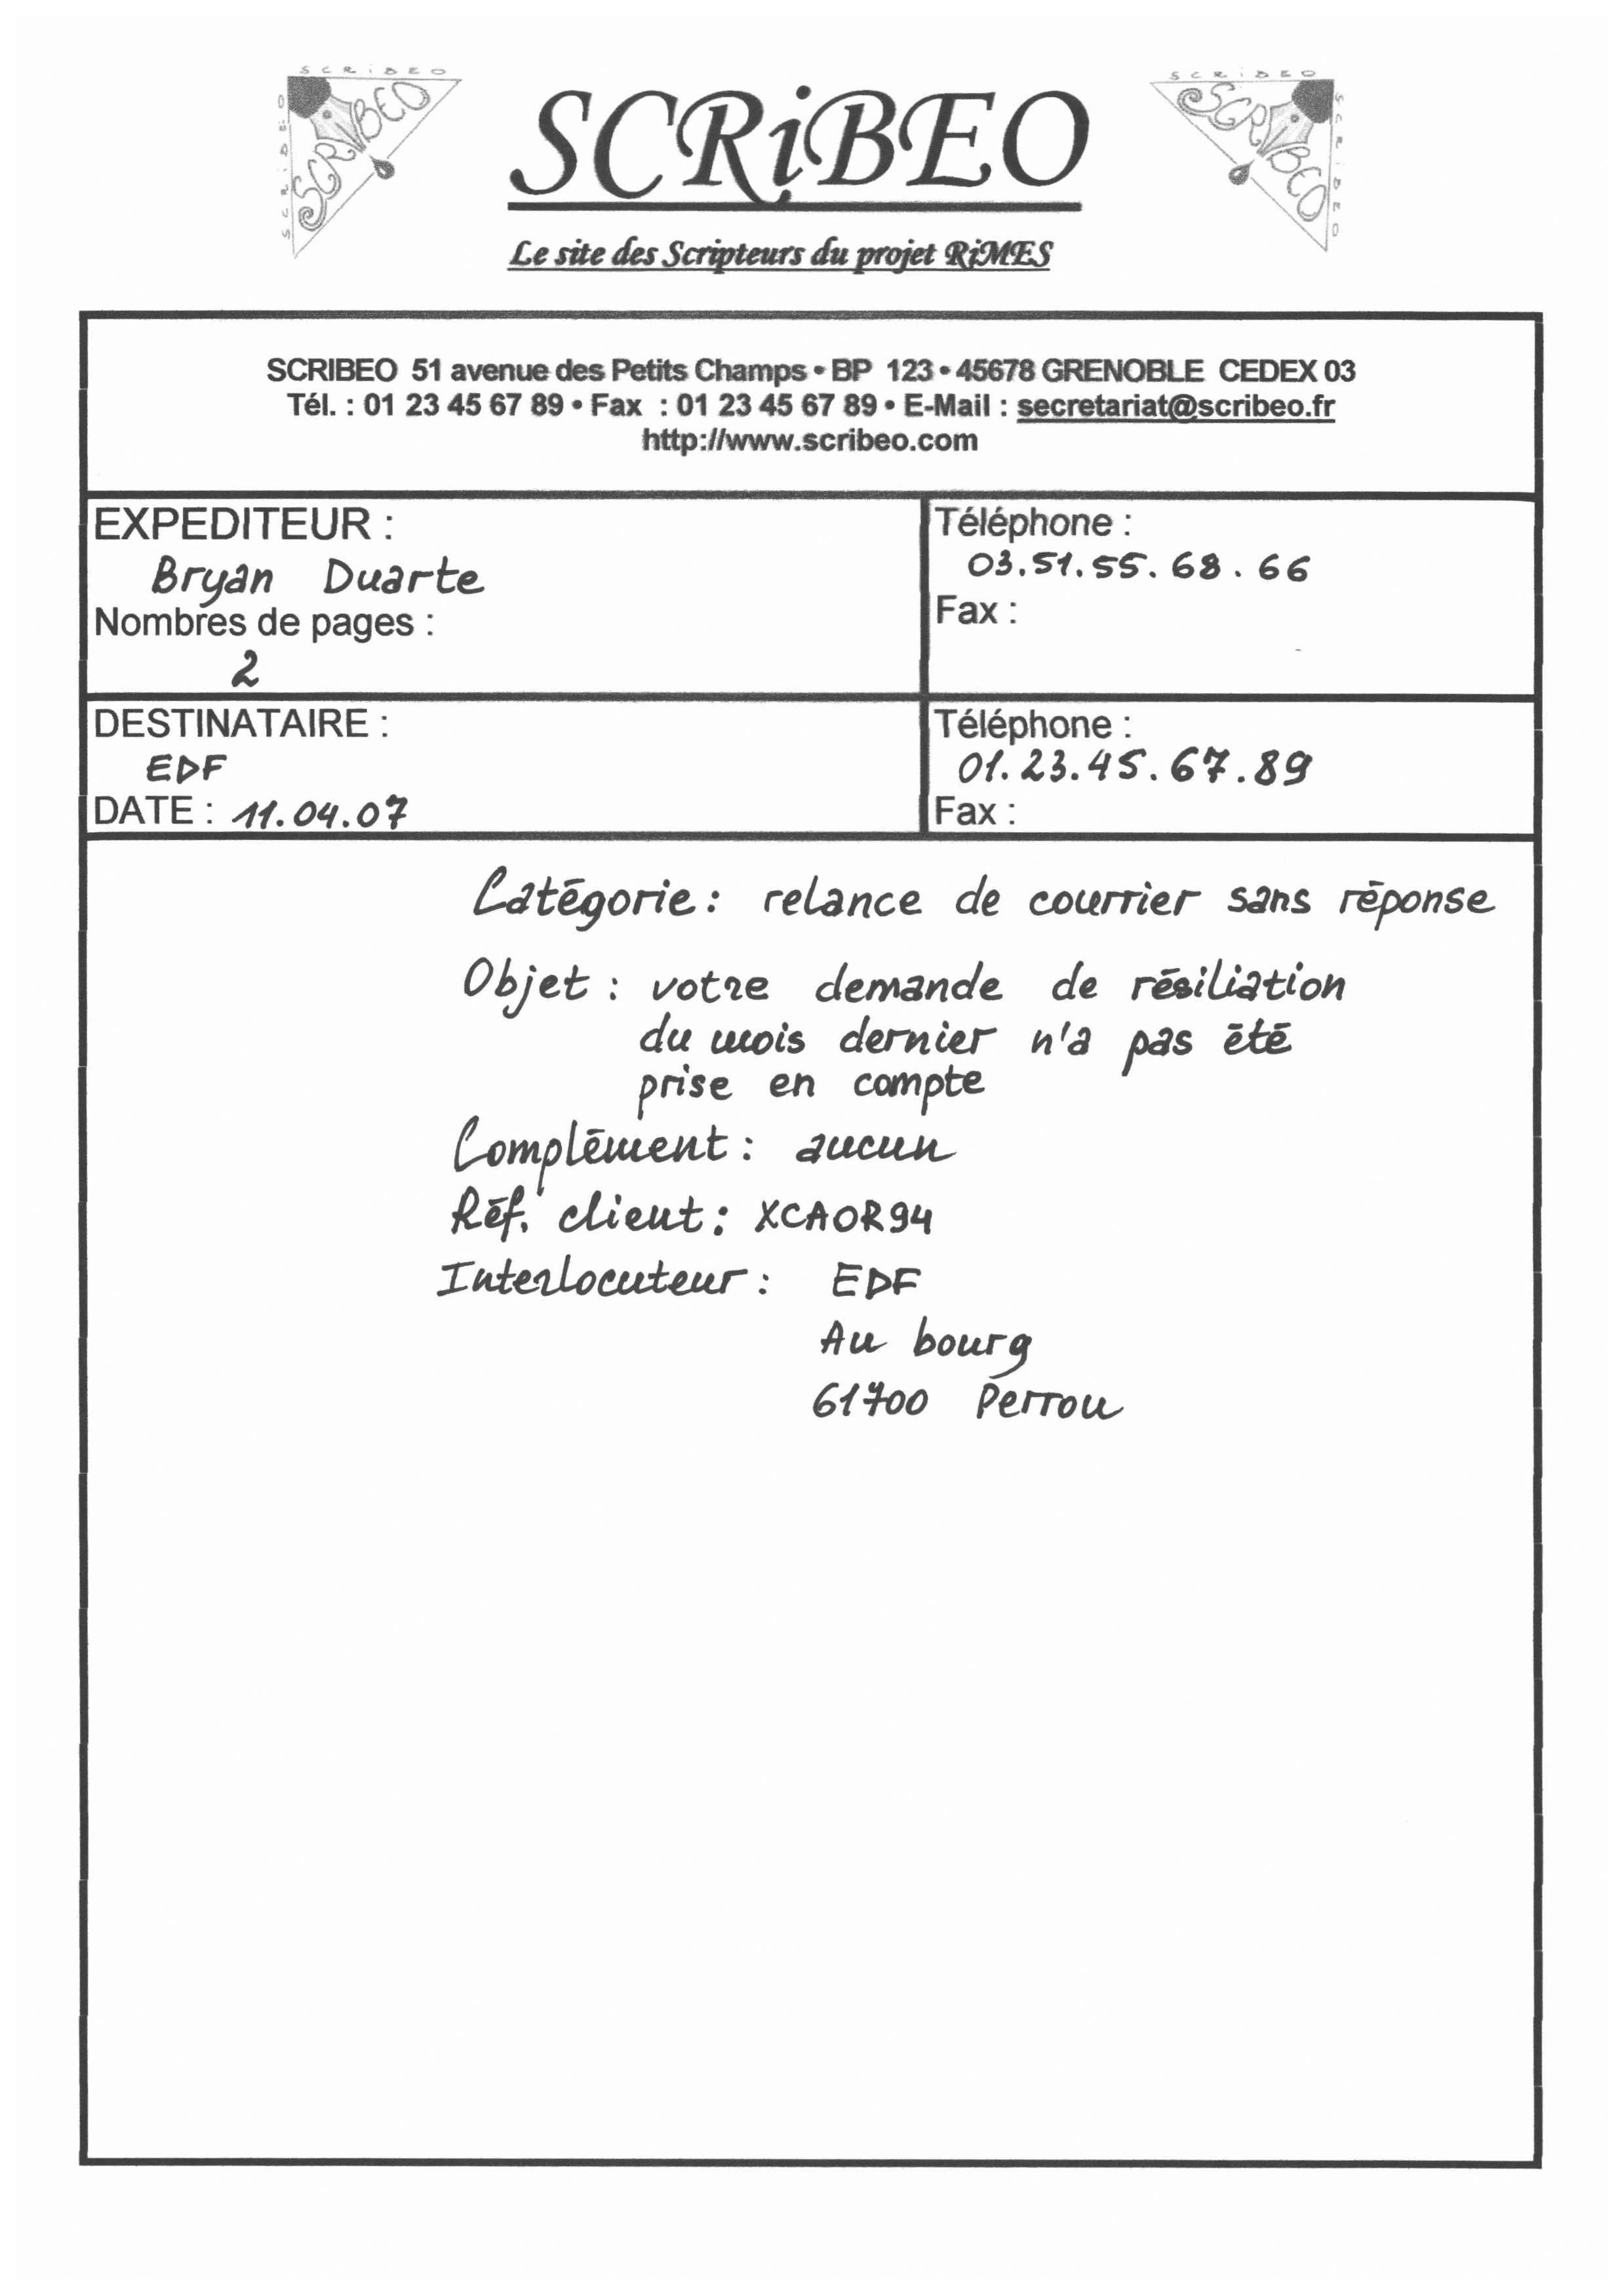 SCRiBEO
SCRiBEO
SCRiBEO
SCRiBEO
SCRiBEO
SCRiBEO
SCRiBEO
Le site des Scripteurs du projet RiMES
SCRIBEO 51 avenue des Petits Champs • BP 123 • 45678 GRENOBLE CEDEX 03
Tél. : 01 23 45 67 89 • Fax : 01 23 45 67 89 • E-Mail : secretariat@scribeo.fr
http://www.scribeo.com
EXPEDITEUR :
Bryan Duarte
Nombres de pages :
2
Téléphone :
03.51.55.68.66
Fax :
DESTINATAIRE :
EDF
DATE : 11.04.07
Téléphone :
01.23.45.67.89
Fax :
Catégorie : relance de courrier sans réponse
Objet : votre demande de résiliation
du mois dernier n'a pas été
prise en compte
Complément : aucun
Réf. client : XCAOR94
Interlocuteur : EDF
Au bourg
61700 Perrou